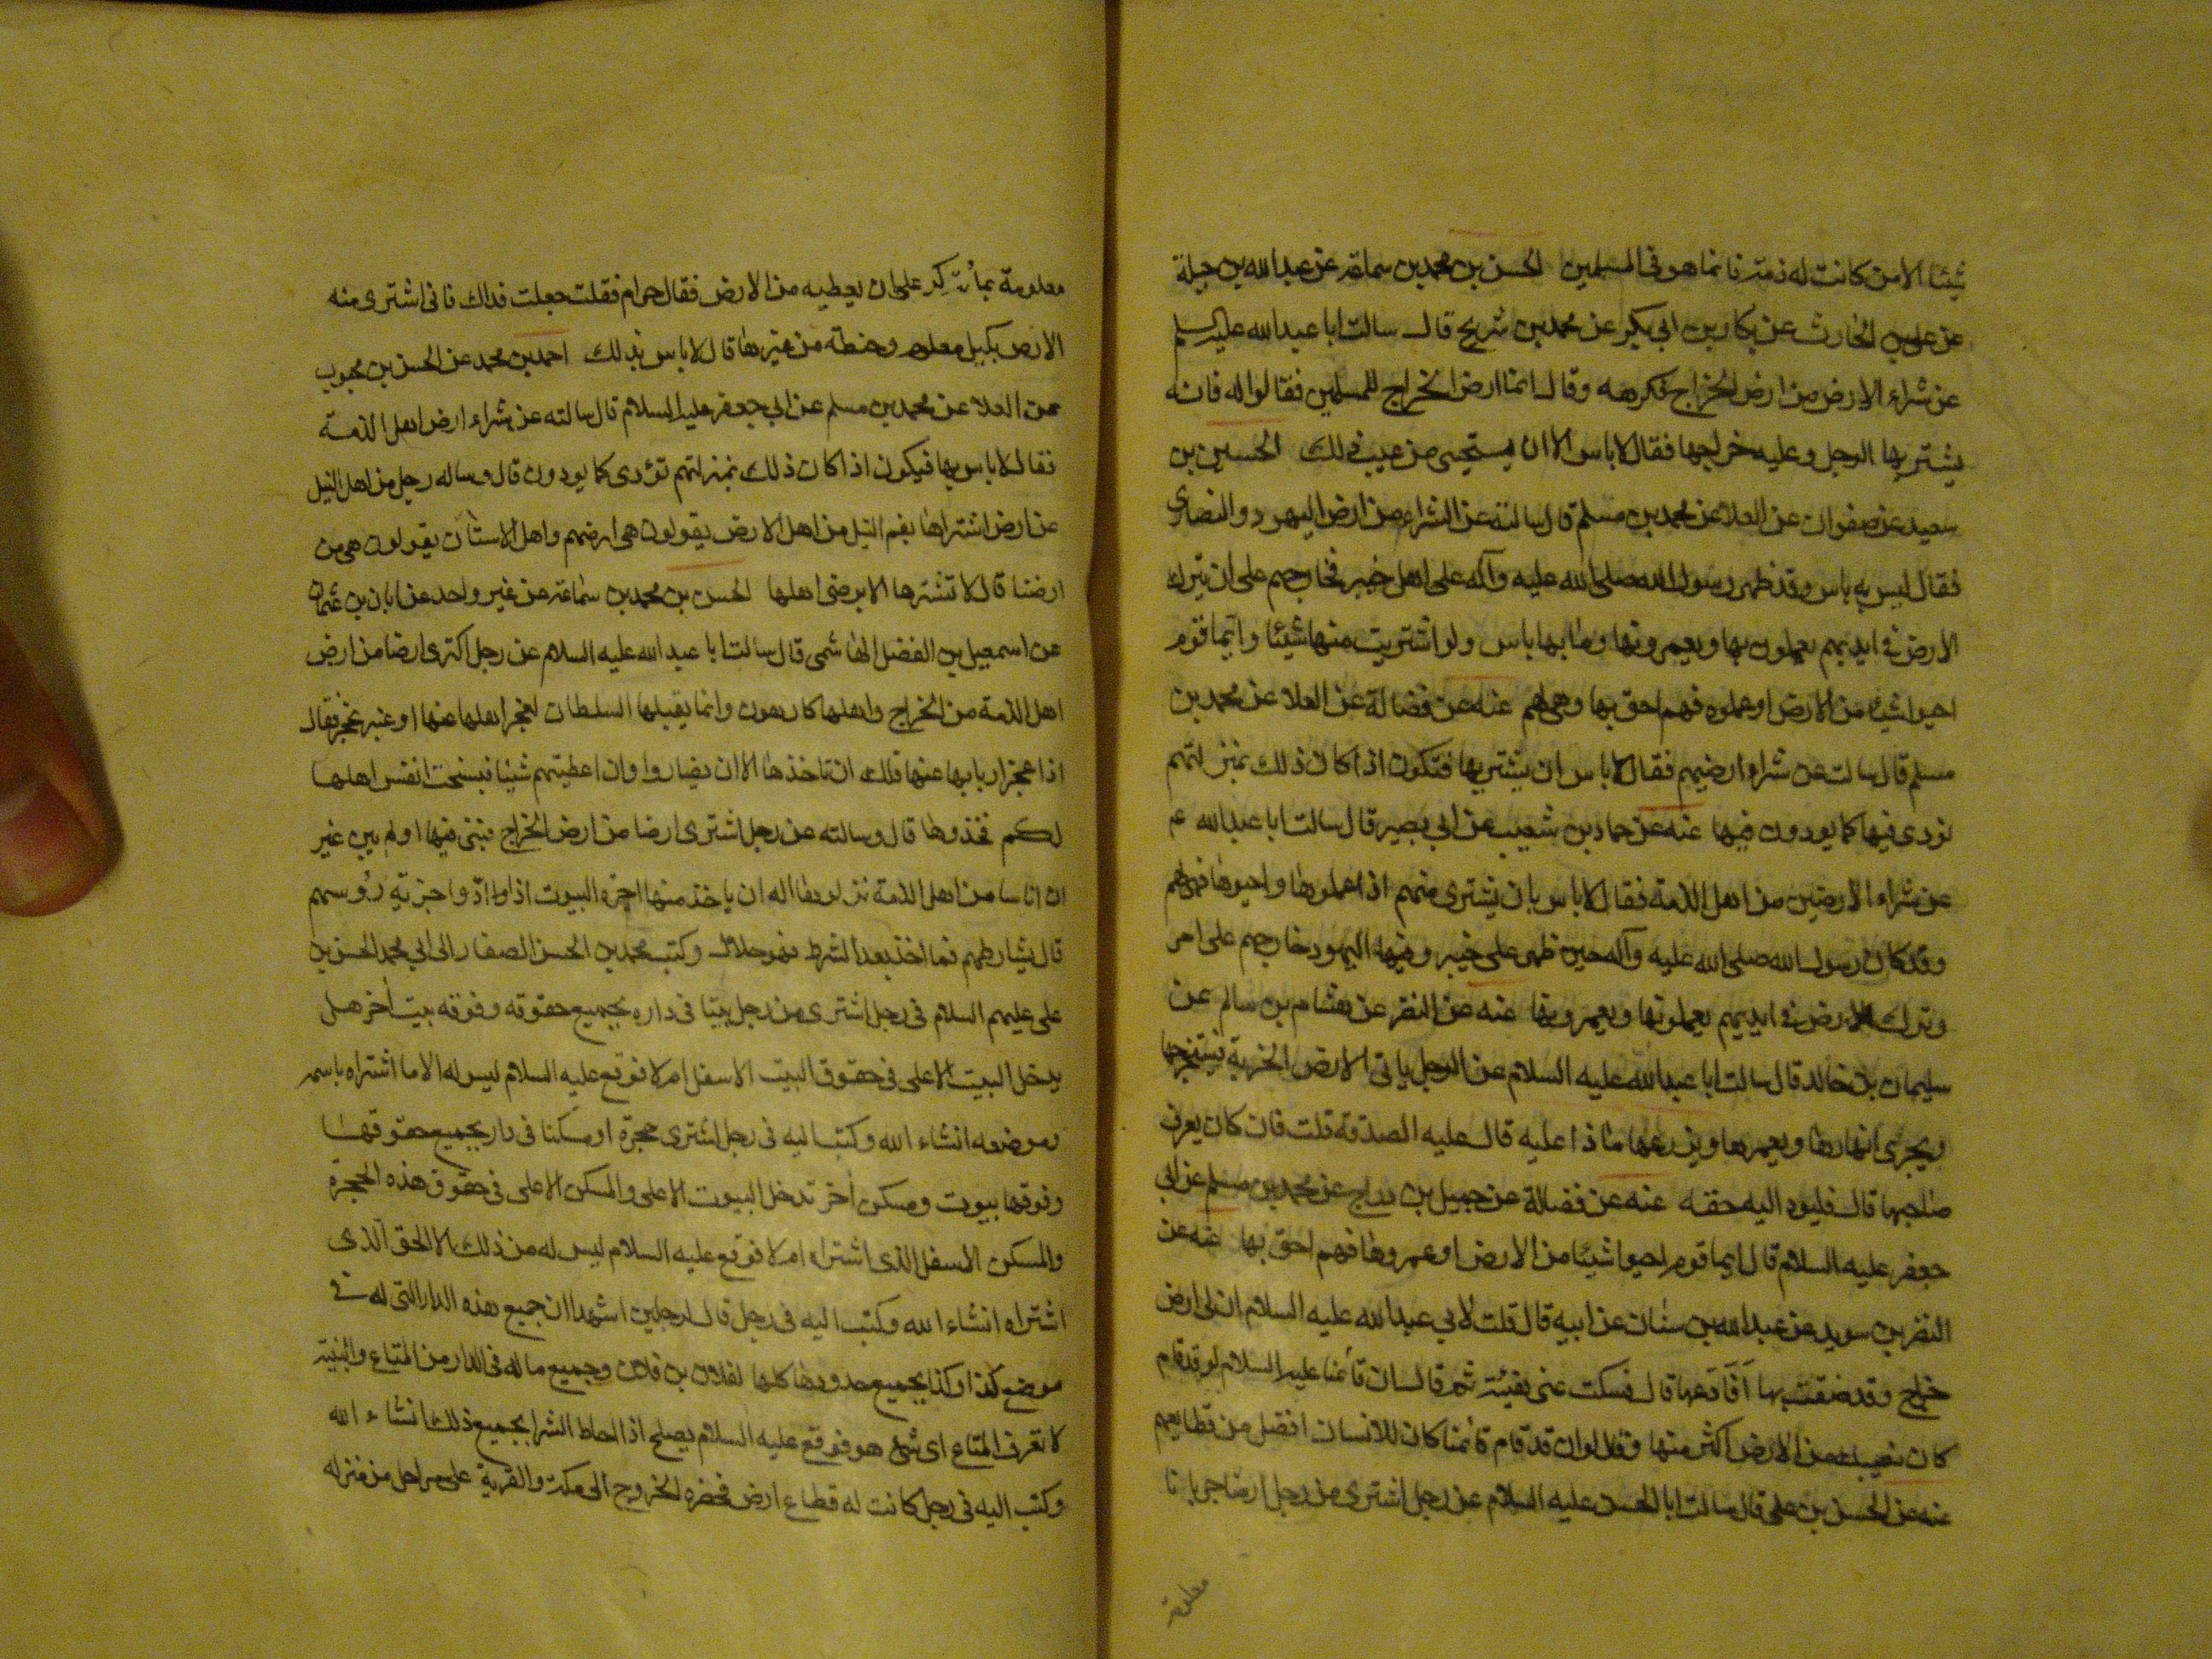 شيئا الا من كانت له ذمة فانما هو فى المسلمين الحسن بن محمد بن سماعة عن عبد الله بن جبلة
عن على بن الحارث عن بكار بن ابى بكر عن محمد بن شريح قال سالت ابا عبد الله عليه السلم
عن شراء الارض من ارض الخراج فكرهه وقال انما ارض الخراج للمسلمين فقالوا له فانه
يشتريها الرجل وعليه خراجها فقال لا باس الا ان يستحيى من عيب ذلك الحسين بن
سعيد عن صفوان عن العلا عن محمد بن مسلم قال سالته عن الشراء من ارض اليهود والنصارى
فقال ليس به باس وقد ظهر رسول الله صلى الله عليه وآله على اهل خيبر فخارجهم على ان يترك
الارض فى ايديهم يعملون بها ويعمرونها وما بها باس ولو اشتريت منها شيئا وايما قوم
احيوا شيئا من الارض او عملوه فهم احق بها وهى لهم عنه عن فضالة عن العلا عن محمد بن
مسلم قال سالت عن شراء ارضيهم فقال لا باس ان يشتريها فتكون اذا كان ذلك بمنزلتهم
تودى فيها كما يودون فيها عنه عن حماد بن شعيب عن ابى بصير قال سالت ابا عبد الله عم
عن شراء الارضين من اهل الذمة فقال لا باس بان يشترى منهم اذا عملوها واحيوها فهى لهم
وقد كان رسول الله صلى الله عليه وآله حين ظهر على خيبر وفيها اليهود خارجهم على امر
وترك الارض فى ايديهم يعملونها ويعمرونها عنه عن النضر عن هشام بن سالم عن
سليمان بن خالد قال سالت ابا عبد الله عليه السلام عن الرجل ياتى الارض الخربة فيستخرجها
ويجرى انهارها ويعمرها ويزرعها ماذا عليه قال عليه الصدقة قلت فان كان يعرف
صاحبها قال فليود اليه حقه عنه عن فضالة عن جميل بن دراج عن محمد بن مسلم عن ابى
جعفر عليه السلام قال ايما قوم احيوا شيئا من الارض او عمروها فهم احق بها عنه عن
النضر بن سويد عن عبد الله بن سنان عن ابيه قال قلت لابى عبد الله عليه السلام ان لى ارض
خراج وقد ضقت بها أفأدعها قال فسكت عنى هنيئة ثم قال ان قائمنا عليه السلام لو قد قام
كان نصيبك من الارض اكثر منها وقال لو ان قد قام قائمنا كان للانسان افضل من قطايعهم
عنه عن الحسن بن على قال سالت ابا الحسن عليه السلام عن رجل اشترى من رجل ارضا جربانا
معلومة
معلومة بمأة كر على ان يعطيه من الارض فقال حرام فقلت جعلت فداك فانى اشترى منه
الارض بكيل معلوم وحنطة من غيرها قال لا باس بذلك احمد بن محمد عن الحسن بن محبوب
عن العلا عن محمد بن مسلم عن ابى جعفر عليه السلام قال سالته عن شراء ارض اهل الذمة
فقال لا باس بها فيكون اذا كان ذلك بمنزلتهم تؤدى كما يودون قال وساله رجل من اهل النيل
عن ارض اشتراها بفم النيل من اهل الارض يقولون هى ارضهم واهل الاستان يقولون هى من
ارضنا قال لا تشترها الا برضى اهلها الحسن بن محمد بن سماعة عن غير واحد عن ابان بن عثمان
عن اسمعيل بن الفضل الهاشمى قال سالت ابا عبد الله عليه السلام عن رجل اكترى ارضا من ارض
اهل الذمة من الخراج واهلها كارهون وانما يقبلها السلطان لعجز اهلها عنها او غير عجز فقال
اذا عجز اربابها عنها فلك ان تاخذها الا ان يضاروا وان اعطيتهم شيئا فسخت انفس اهلها
لكم فخذوها قال وسالته عن رجل اشترى ارضا من ارض الخراج فبنى فيها او لم يبن غير
ان اناسا من اهل الذمة نزلوها اله ان ياخذ منها اجرة البيوت اذا ادّوا جزية رؤسهم
قال يشارطهم فما اخذ بعد الشرط فهو حلال وكتب محمد بن الحسن الصفار الى ابى محمد الحسن بن
على عليهم السلام فى رجل اشترى من رجل بيتا فى داره بجميع حقوقه وفوقه بيت آخر هل
يدخل البيت الاعلى فى حقوق البيت الاسفل ام لا فوقع عليه السلام ليس له الا ما اشتراه باسمه
وموضعه انشاء الله وكتب اليه فى رجل اشترى حجرة او مسكنا فى دار بجميع حقوقها
وفوقها بيوت ومسكن آخر تدخل البيوت الاعلى والمسكن الاعلى فى حقوق هذه الحجرة
والمسكن الاسفل الذى اشتراه ام لا فوقع عليه السلام ليس له من ذلك الا الحق الذى
اشتراه انشاء الله وكتب اليه فى رجل قال لرجلين اشهدا ان جميع هذه الدار التى له فى
موضع كذا وكذا بجميع حدودها كلها لفلان بن فلان وجميع ما له فى الدار من المتاع والبنية
لا تعرف المتاع اى شئ هو فوقع عليه السلام يصلح اذا احاط الشرا بجميع ذلك انشاء الله
وكتب اليه فى رجل كانت له قطاع ارض فحضره الخروج الى مكة والقرية على مراحل من منزله